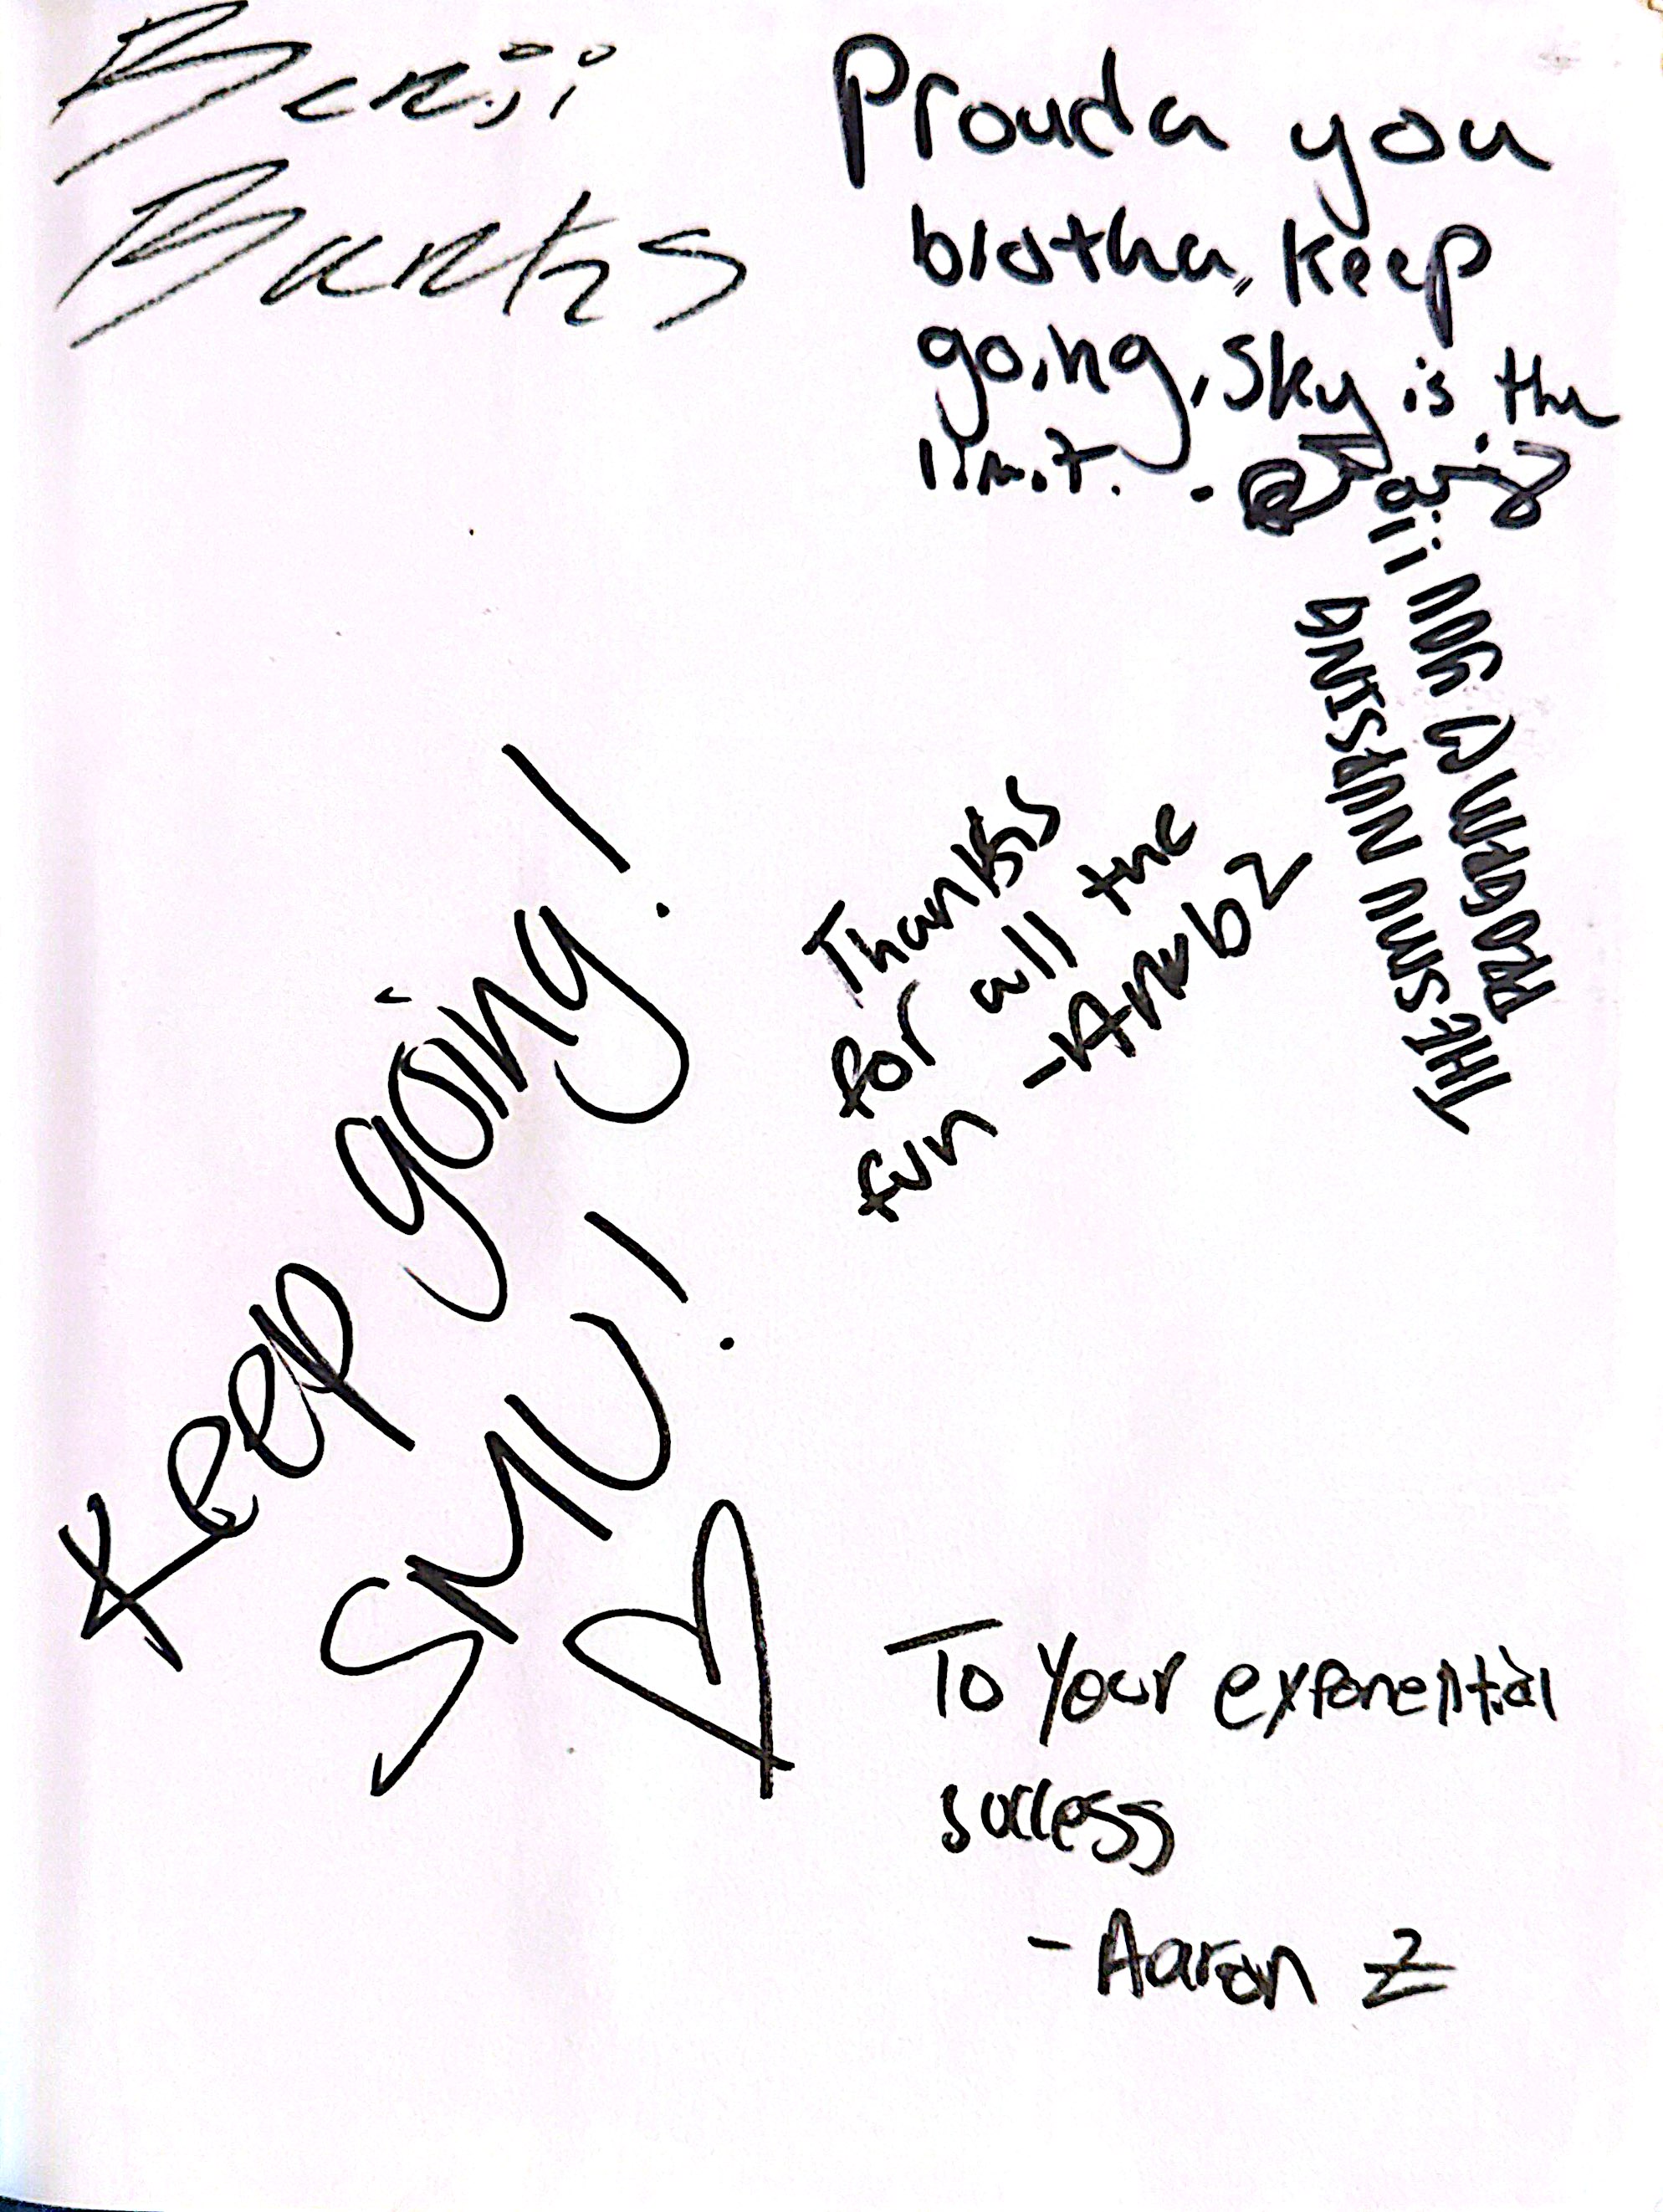 Benji
Banks
Prouda you
brotha, keep
going, sky is the
limit. - @Tariq
THE SMU NURSING
PROGRAM (?) YOU !!
Thanks
for all the
fun -Anubz
Keep going!
SMU!
To Your exponential
success
- Aaron Z